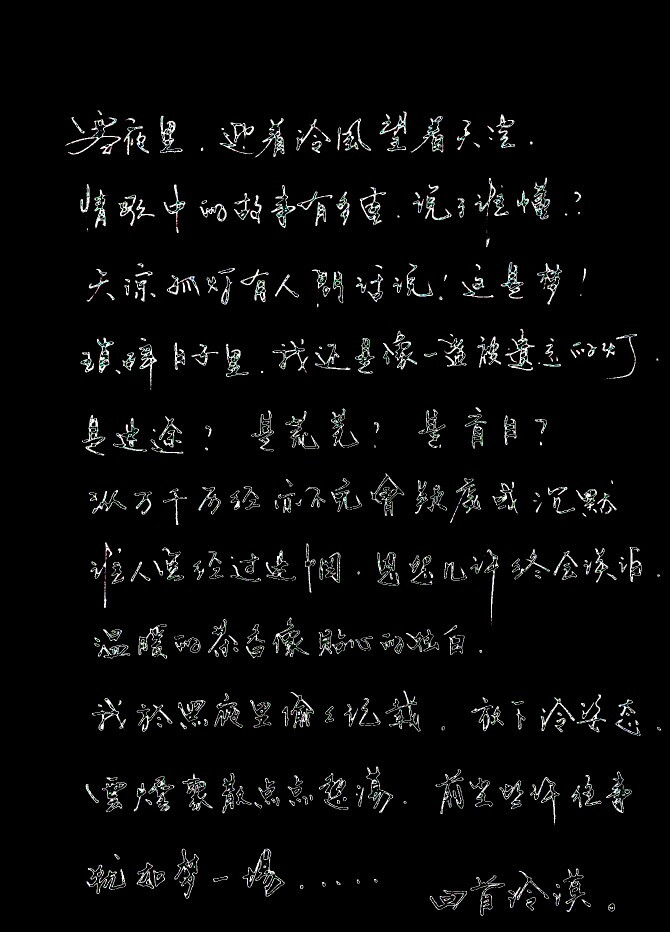 寒夜里，迎着冷風望着天空，
情歌中的故事有多重，说于谁懂？
天凉孤灯有人問话说！这是梦！
瑣碎日子里，我还是像一盏被遺忘的灯，
是迷途？是荒芜？是盲目？
从万千历经亦不免會疑虑或沉默
谁人曾经过迷惘，思想几许终会淡泊，
温暖的茶香像貼心的独白，
我於黑夜里偷偷记载，放下冷姿态，
雲煙聚散点点起荡，前尘些许往事
犹如梦一場......
回首冷漠。